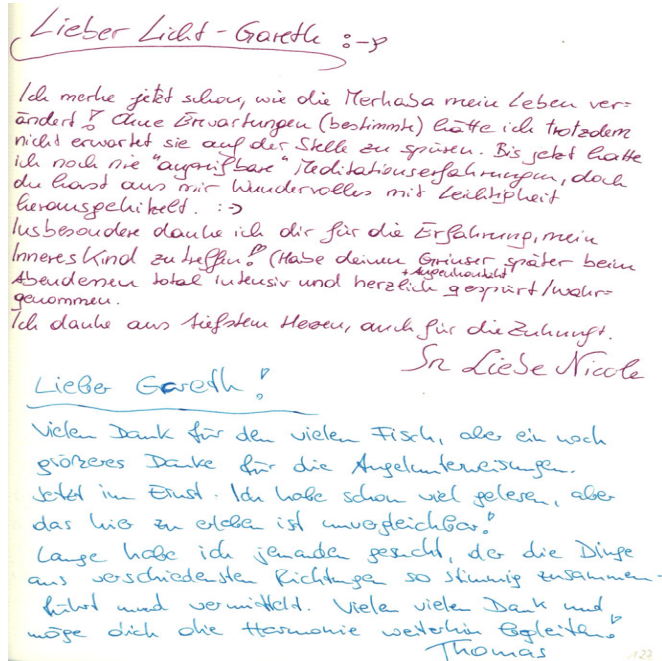 Lieber Licht-Gareth :-)
Ich merke jetzt schon, wie die Merhaba mein Leben ver=
ändert! Ohne Erwartungen (bestimmte) hätte ich trotzdem
nicht erwartet sie auf der Stelle zu spüren. Bis jetzt hatte
ich noch nie "angreifbare" Meditationserfahrungen, doch
du hast aus mir Wundervolles mit Leichtigkeit
herausgekitzelt. :->
Insbesondere danke ich dir für die Erfahrung, mein
Inneres Kind zu treffen! (Habe deinen Grinser später beim
+ Augenkontakt
Abendessen total intensiv und herzlich gespürt/wahr=
genommen.
Ich danke aus tiefstem Herzen, auch für die Zukunft.
In Liebe Nicole
Lieber Gareth!
Vielen Dank für den vielen Fisch, aber ein noch
größeres Danke für die Angelunterweisungen.
Jetzt im Ernst. Ich habe schon viel gelesen, aber
das hier zu erleben ist unvergleichbar!
Lange habe ich jemanden gesucht, der die Dinge
aus verschiedensten Richtungen so stimmig zusammen-
führt und vermittelt. Vielen vielen Dank und
möge dich die Harmonie weiterhin begleiten!
Thomas
122